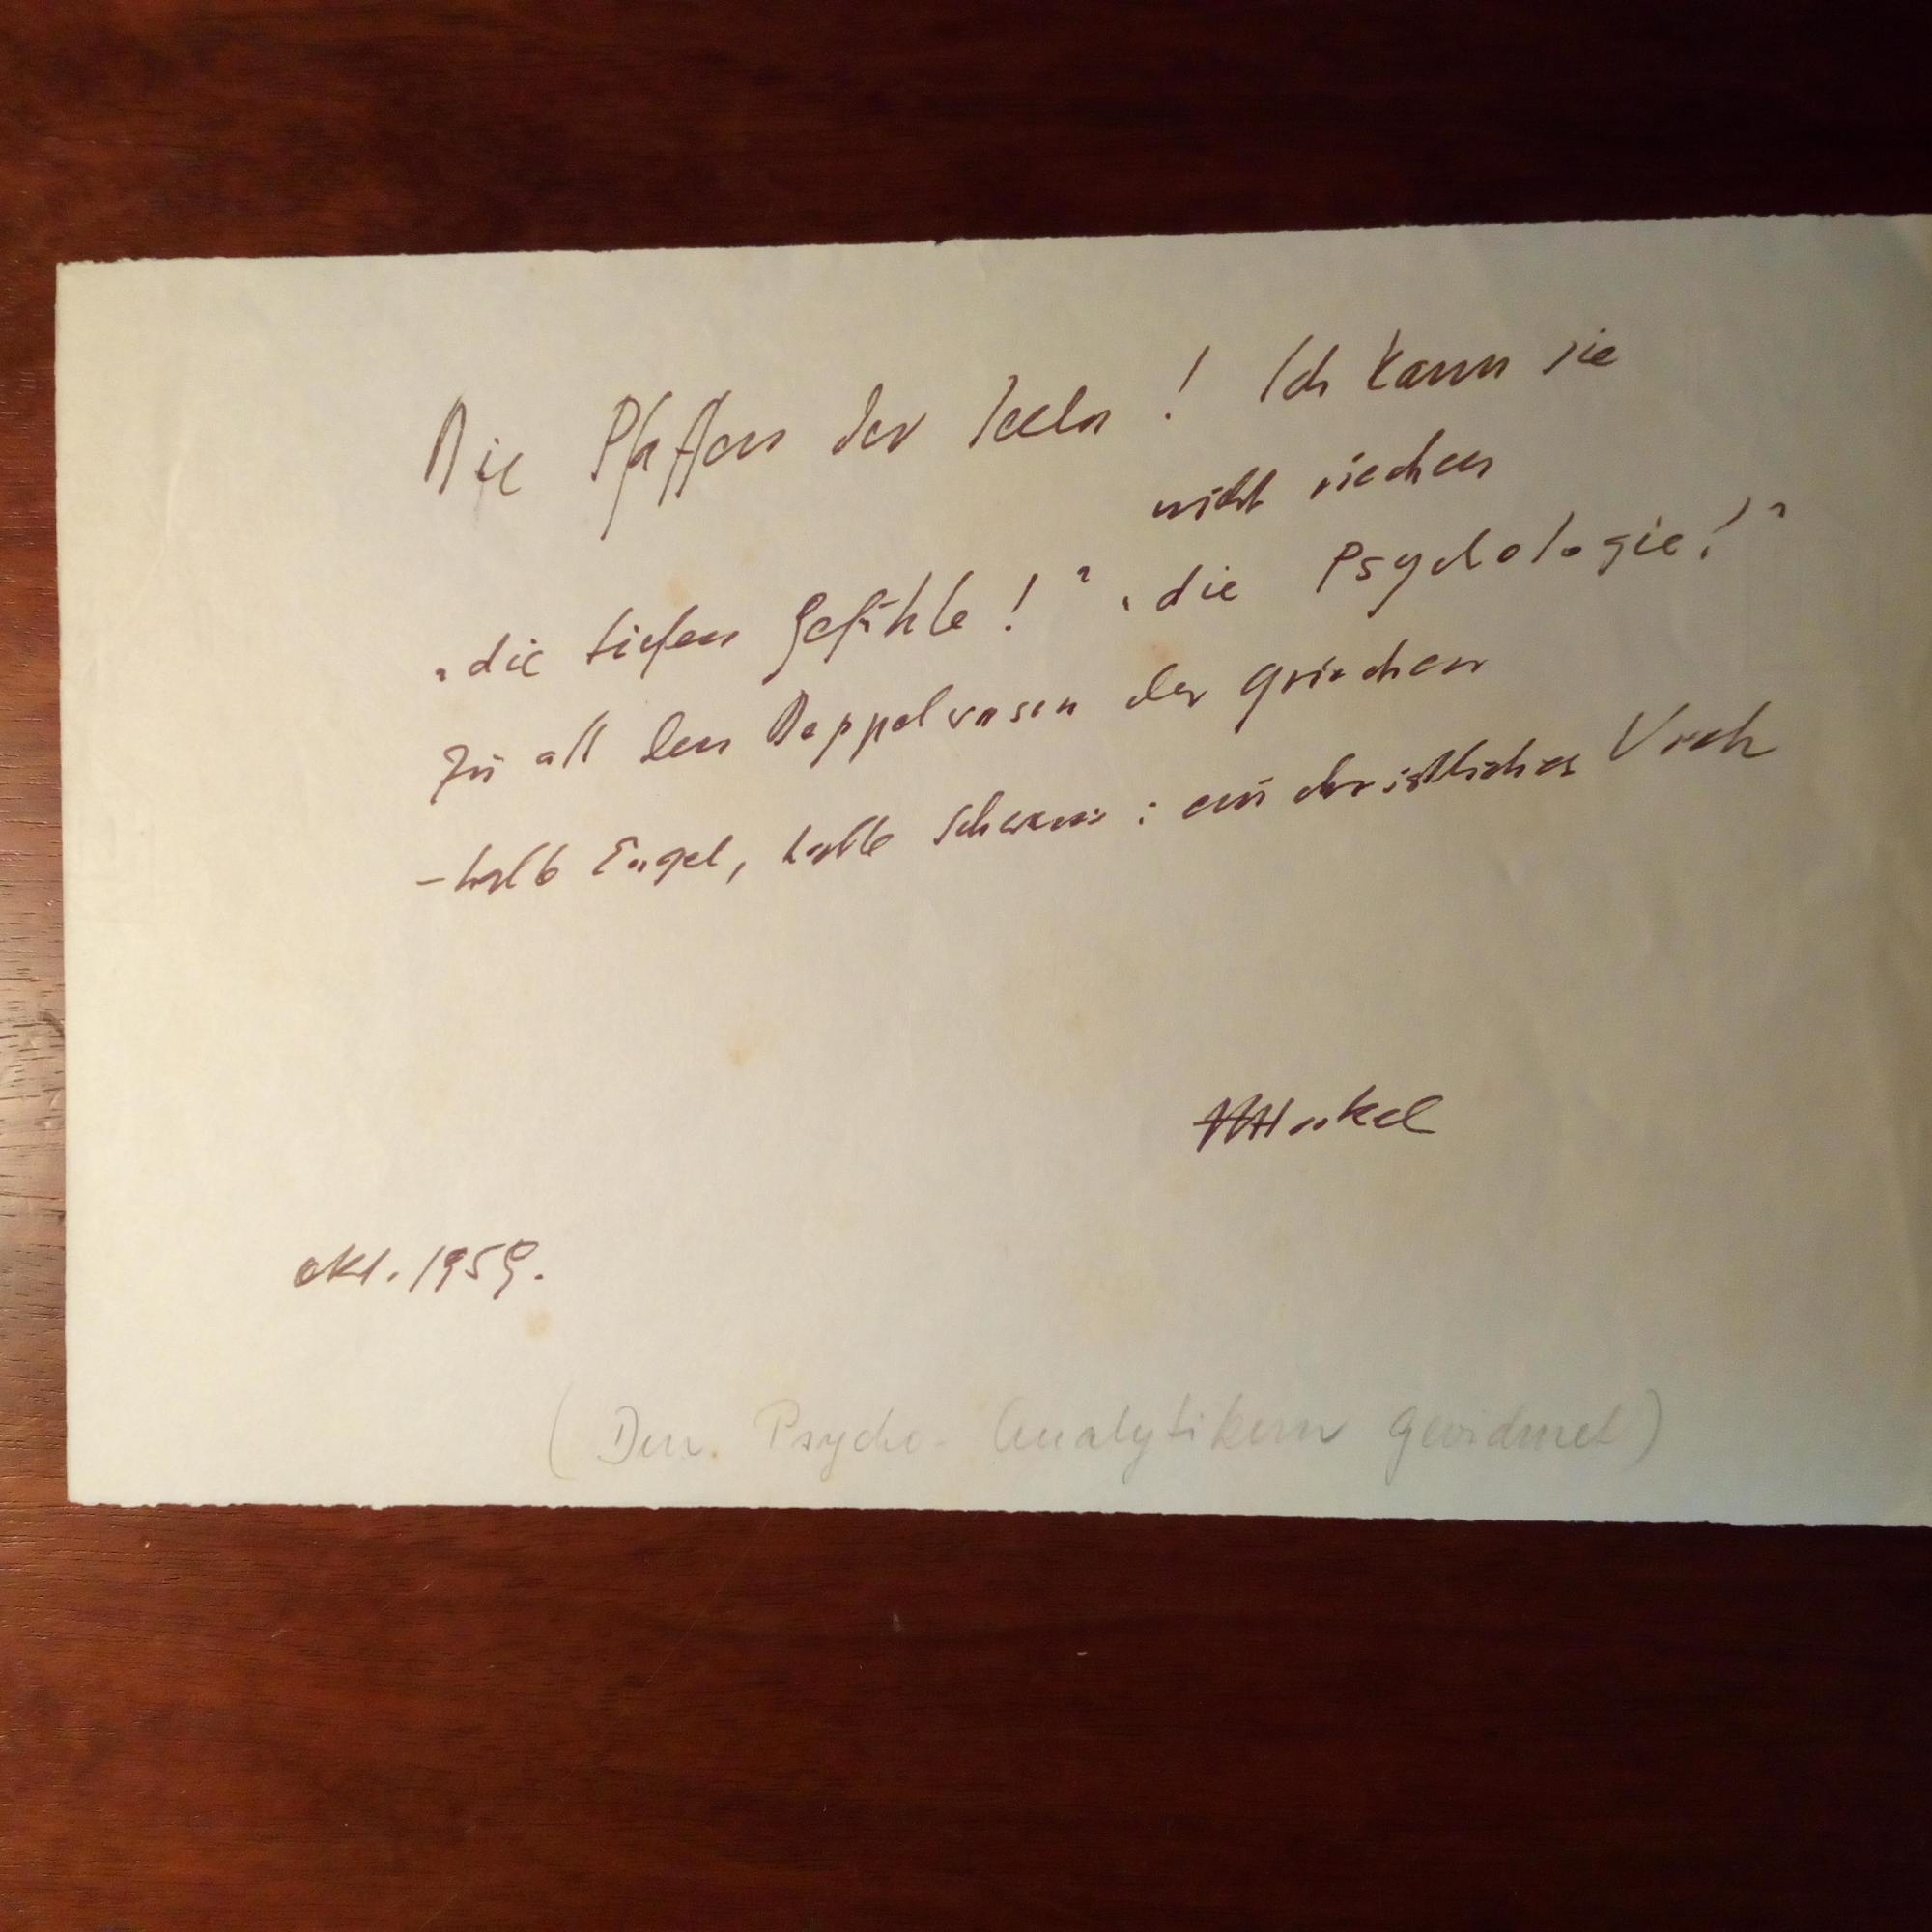 Die Pfaffen der Seeln! Ich kann sie
nicht riechen
„die tiefen Gefühle!" „die Psychologie!"
zu all den Doppelwesen der Griechen
– halb Engel, halb Schwein: ein christliches Vieh
okt. 1959.
(Den Psycho-Analytikern gewidmet)